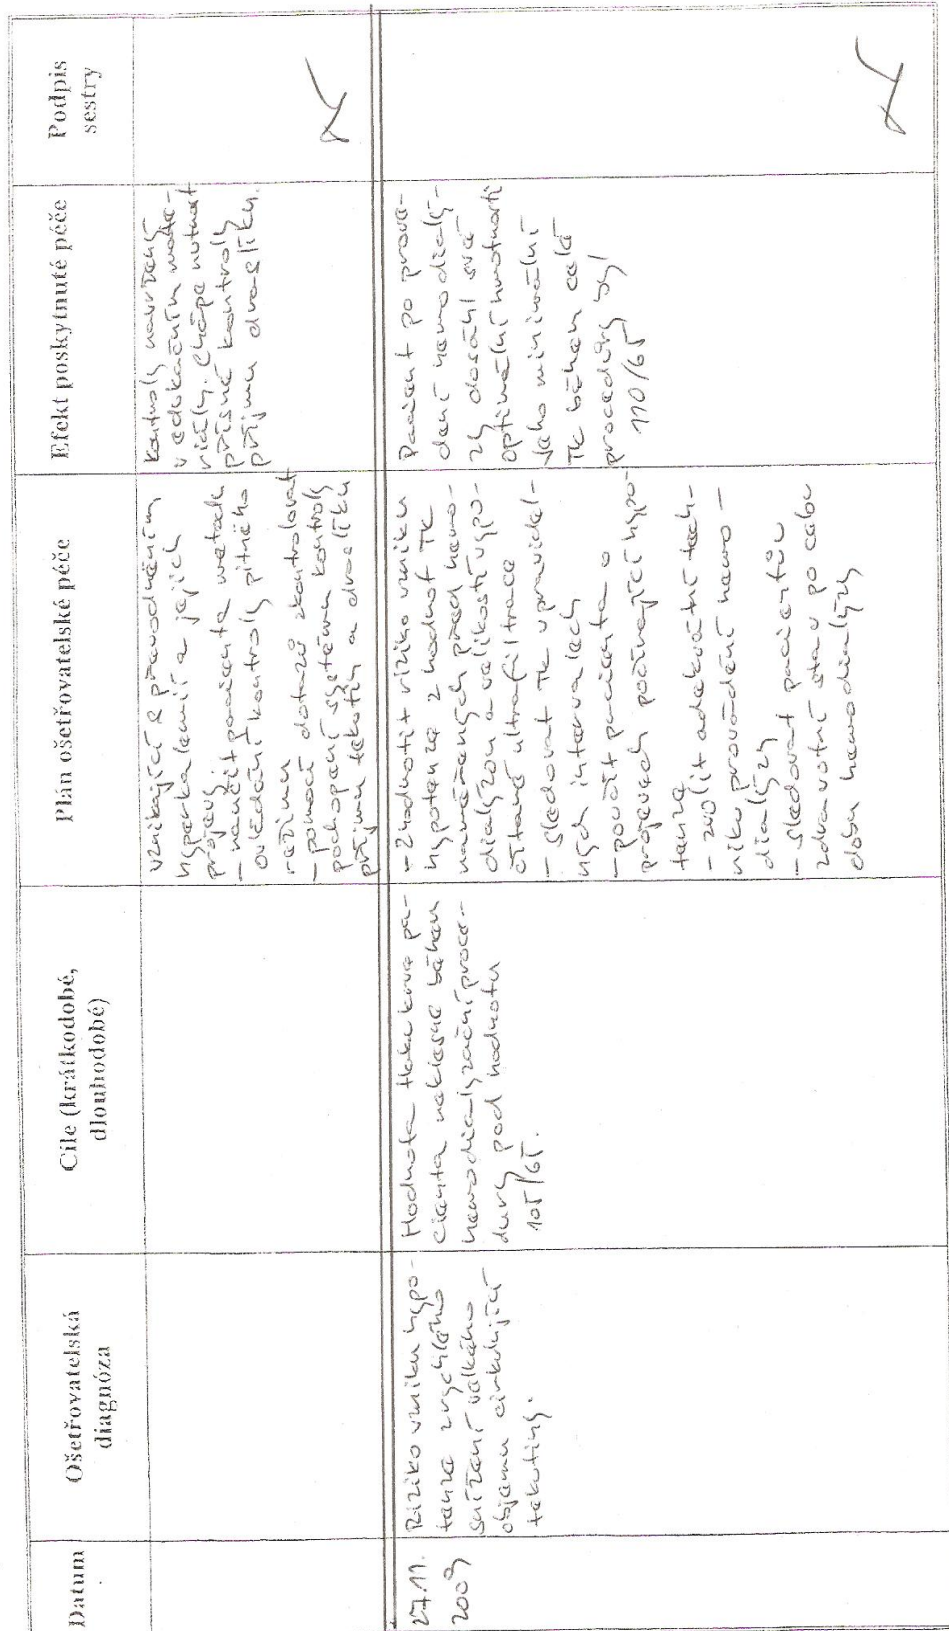 Datum
Ošetřovatelská
diagnóza
Cíle (krátkodobé,
dlouhodobé)
Plán ošetřovatelské péče
Efekt poskytnuté péče
Podpis
sestry
vznikající s převodněním,
hyperkalemií a jejich
projevy
- naučit pacienta metodě
ovládání kontroly pitného
režimu
- pomocí dotazů zkontrolovat
pochopení systému kontroly
příjmu tekutin a draslíku
kontroly navržený
v edukačním mate-
riály. Chápe nutnost
přísné kontroly
příjmu draslíku.
27.11.
2009
Riziko vzniku hypo-
tenze rychlého
snížení velkého
objemu cirkulující
tekutiny.
Hodnota tlaku krve pa-
cienta neklesne během
hemodialyzační proce-
dury pod hodnotu
105/65.
- Zhodnotit riziko vzniku
hypotenze z hodnot TK
naměřených před hemo-
dialýzou a velikostí vypo-
čítané ultrafiltrace
- sledovat TK v pravidel-
ných intervalech
- poučit pacienta o
projevech počínající hypo-
tenze
- zvolit adekvátní tech-
niku provádění hemo-
dialýzy
- sledovat pacientův
zdravotní stav po celou
dobu hemodialýzy
Pacient po prove-
dení hemodialý-
zy dosáhl své
optimální hmotnosti
Jeho minimální
TK během celé
procedury byl
110/65